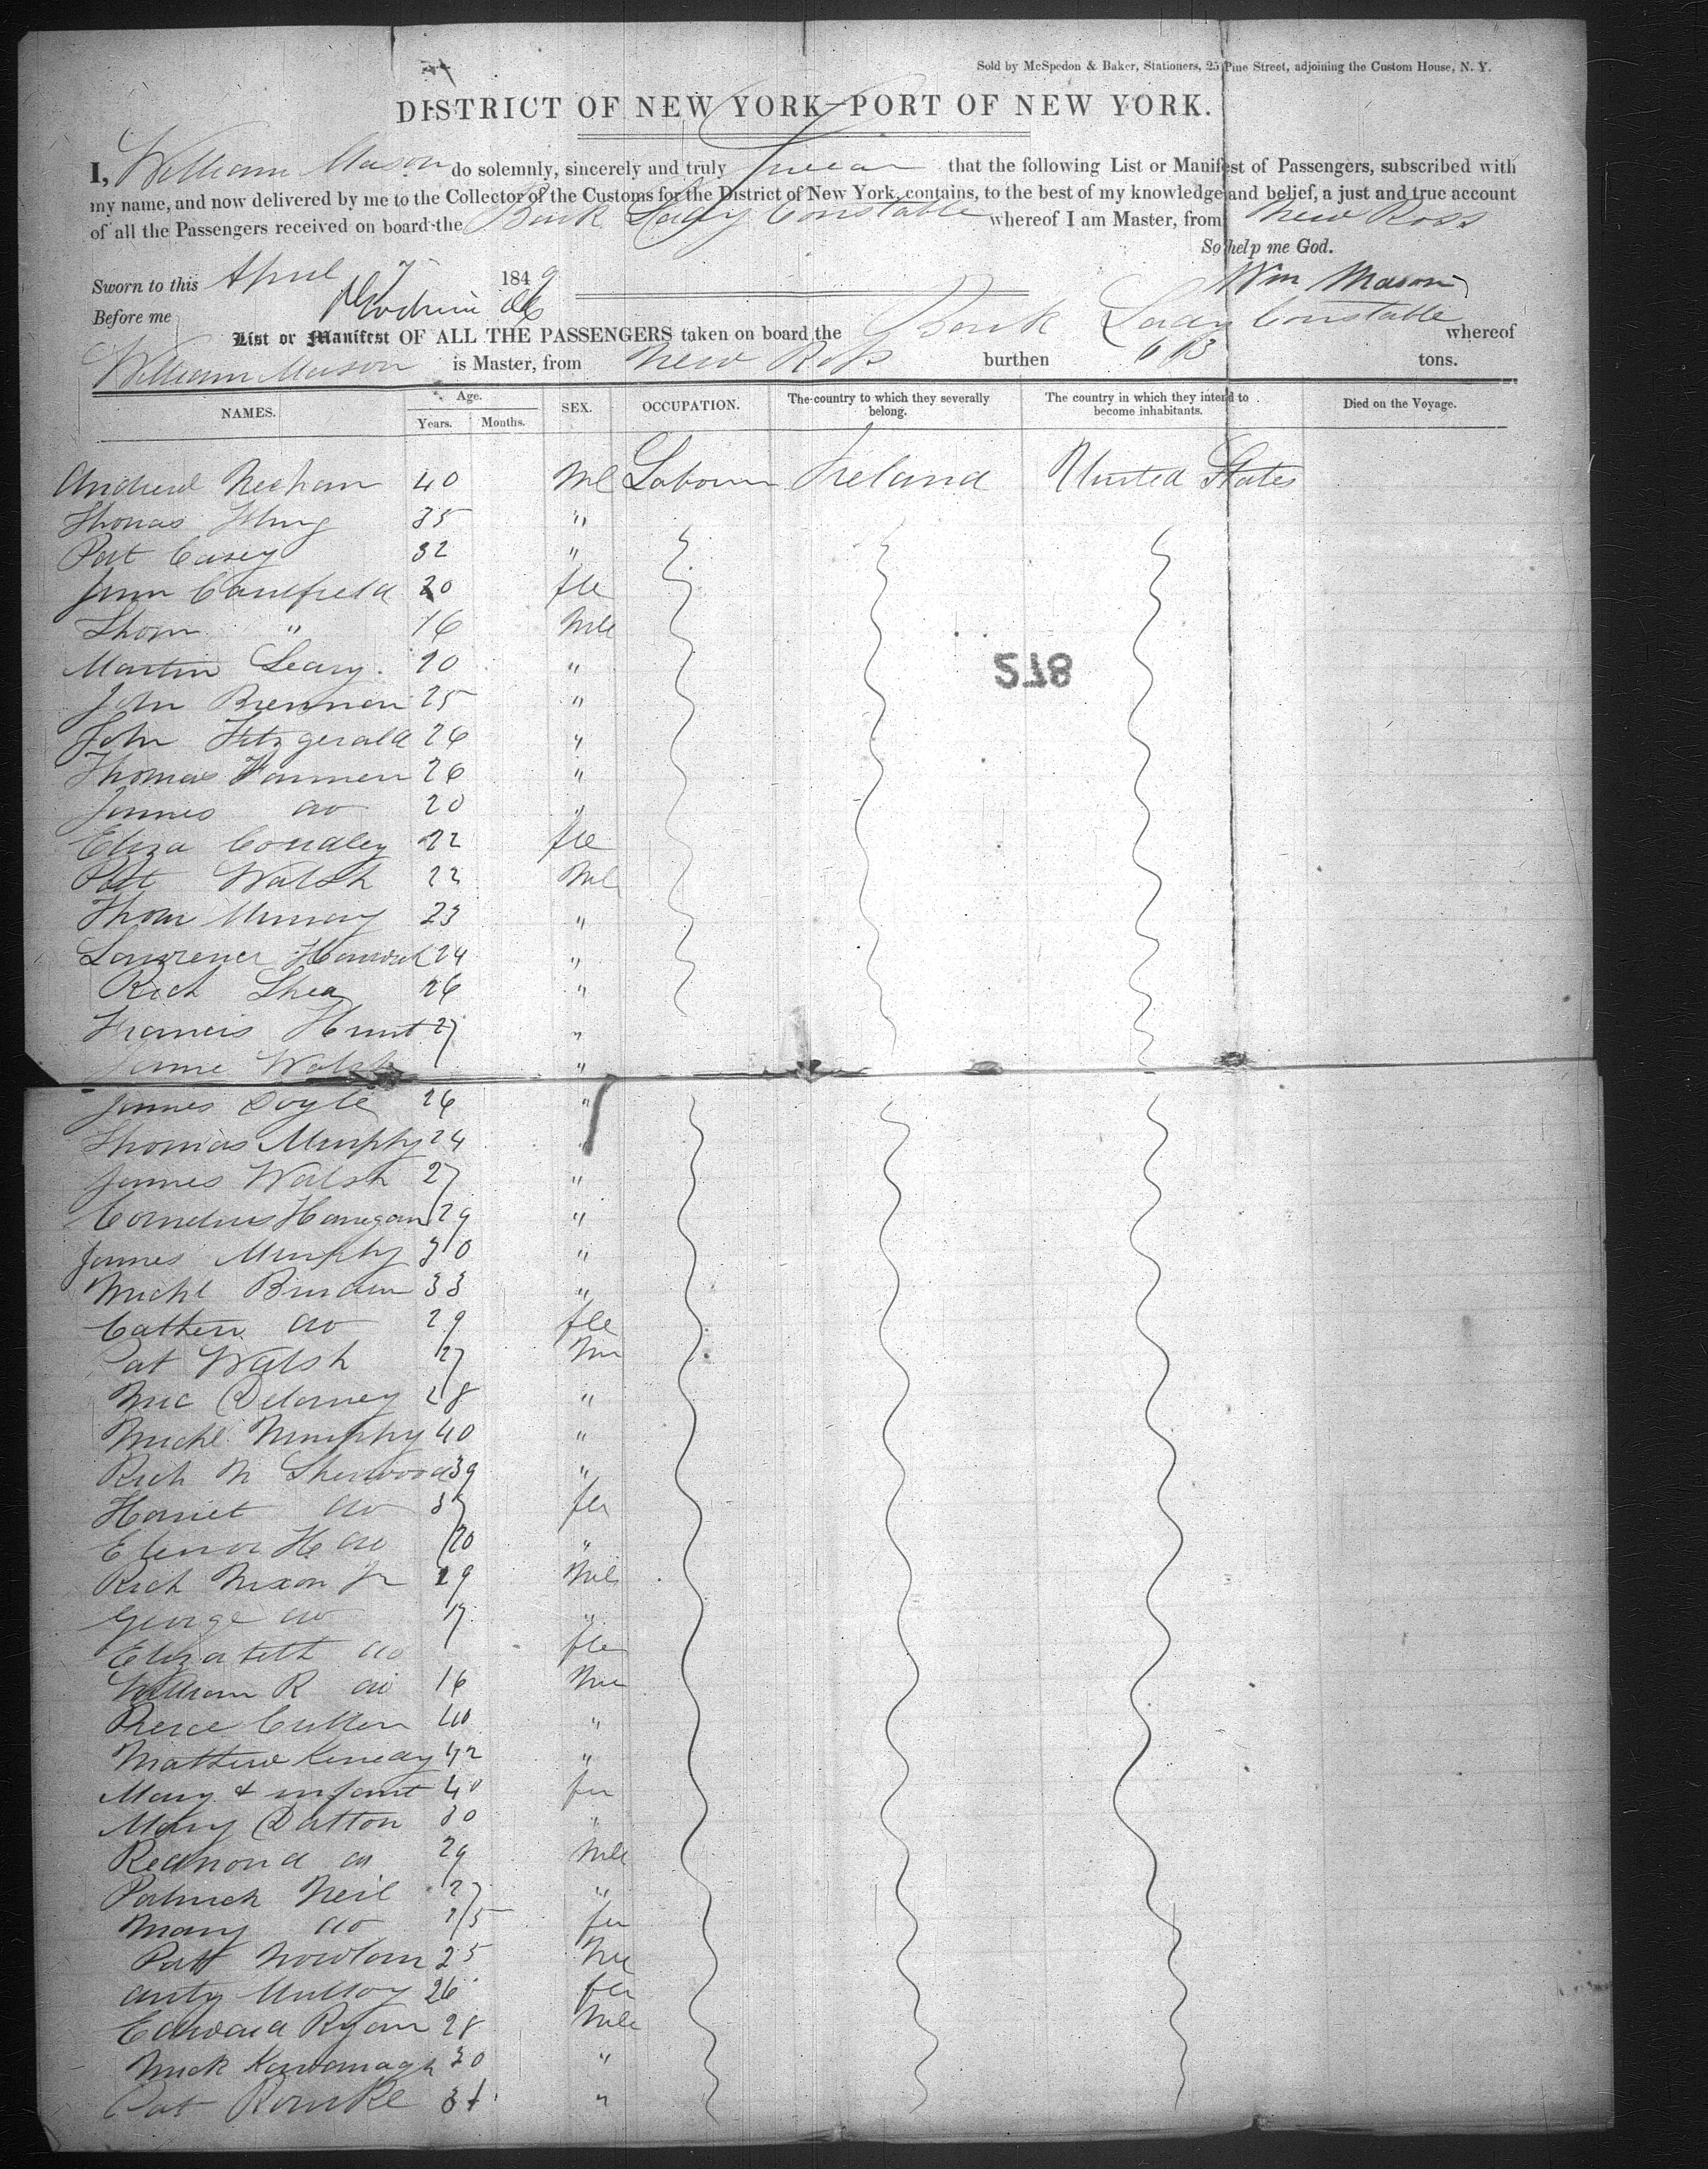 Sold by McSpedon & Baker, Stationers, 25 Pine Street, adjoining the Custom House, N. Y.
DISTRICT OF NEW YORK—PORT OF NEW YORK.
I, William Mason do solemnly, sincerely and truly Swear that the following List or Manifest of Passengers, subscribed with
my name, and now delivered by me to the Collector of the Customs for the District of New York, contains, to the best of my knowledge and belief, a just and true account
of all the Passengers received on board the Bark Lady Constable whereof I am Master, from New Ross
So help me God.
Sworn to this April 7 1849 Wm Mason
Before me
List or Manifest OF ALL THE PASSENGERS taken on board the Bark Lady Constable whereof
William Mason is Master, from New Ross burthen tons.
NAMES. Age. Years. Months. SEX. OCCUPATION. The country to which they severally belong. The country in which they intend to become inhabitants. Died on the Voyage.
Andrew Meehan 40 Ml Labourer Ireland United States
Thomas 35 "
Pat Casey 32 "
Jann Caulfield 20 fle
Thom " 16 Mle
Martin Leary 20 "
John Brennan 25 "
278
John Fitzgerald 26 "
Thomas 26 "
James do 20 "
Eliza Coudley 22 fle
Patt Walsh 22 Ml
Thom Murray 23 "
Lawrence 24 "
Rich Shea 26 "
Francis Hunt 27 "
Walsh "
James Doyle 26 "
Thomas Murphy 24 "
James Walsh 27 "
Cornelius Hanegan 29 "
James Murphy 30 "
Michl 33 "
Cathern do 29 fle
Pat Walsh 27 Ml
Mic Delaney 28 "
Michl Murphy 40 "
Rich N Sherwood 39 "
Harriet do 37 fle
Elenor H do 20 "
Rich Nixon Jr 19 Mle
George do 17 "
Elizabeth do fle
William R do 16 Mle
Pierce Cullen 40 "
Mathew Kenedy 42 "
Mary & infant 40 fle
Mary Datton 30 "
Redmond do 29 Mle
Patrick Neil 27 "
Mary do 25 fle
Patt Nowlan 25 Mle
Anty Mulloy 26 fle
Edward Ryan 28 Mle
Mick Kavanagh 30 "
Pat Rourke 31 "